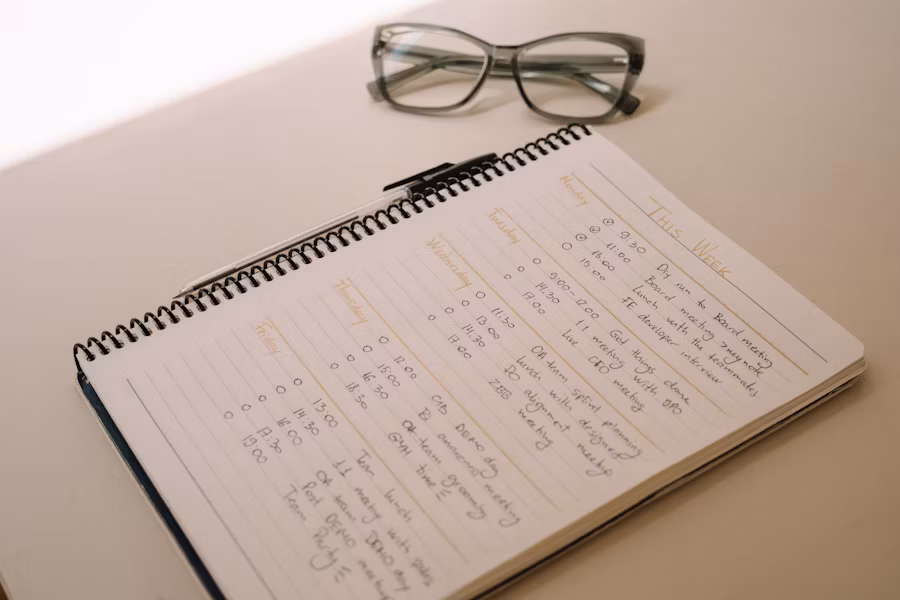 THIS WEEK
Monday
9:30 Dry run to Board meeting
11:00 Board meeting > keynote
13:00 Lunch with the teammates
15:00 FE developer interview
Tuesday
9:00-12:00 Get things done
14:30 1:1 meeting with
17:00 Live meeting
Wednesday
11:30 QA team sprint planning
13:00 Lunch with designers
14:30 PO alignment meetup
17:00 meeting
Thursday
12:00 DEMO day
15:00 BI meeting
16:30 QA team grooming
18:30 GYM time
Friday
13:00 Team lunch
14:30 1:1 meeting with sales
16:00 QA team DEMO day
17:30 Post DEMO meeting
19:00 Team Party